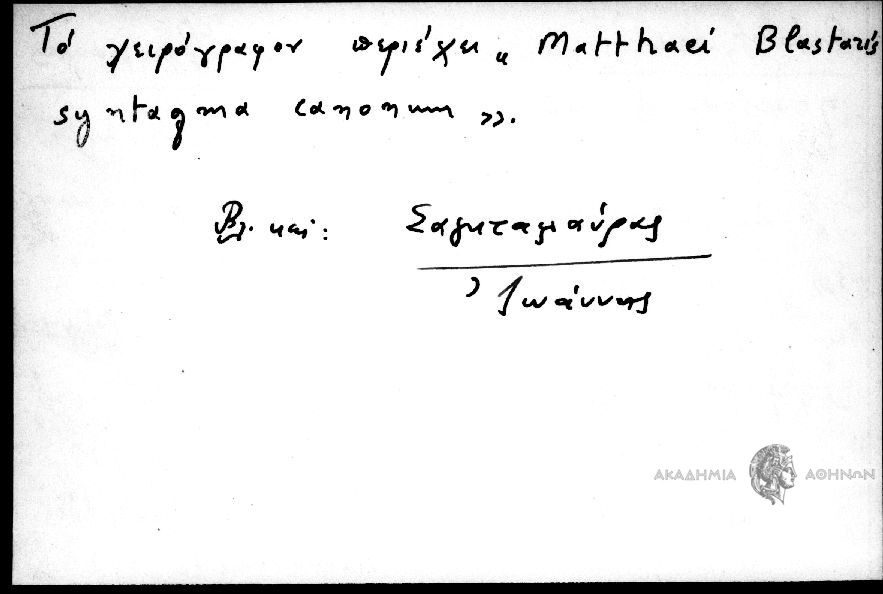 Τό χειρόγραφον περιέχει « Matthaei Blastaris
syntagma canonum ».
Βλ. καί: Σαγκταμαύρας
Ἰωάννης
ΑΚΑΔΗΜΙΑ ΑΘΗΝΩΝ